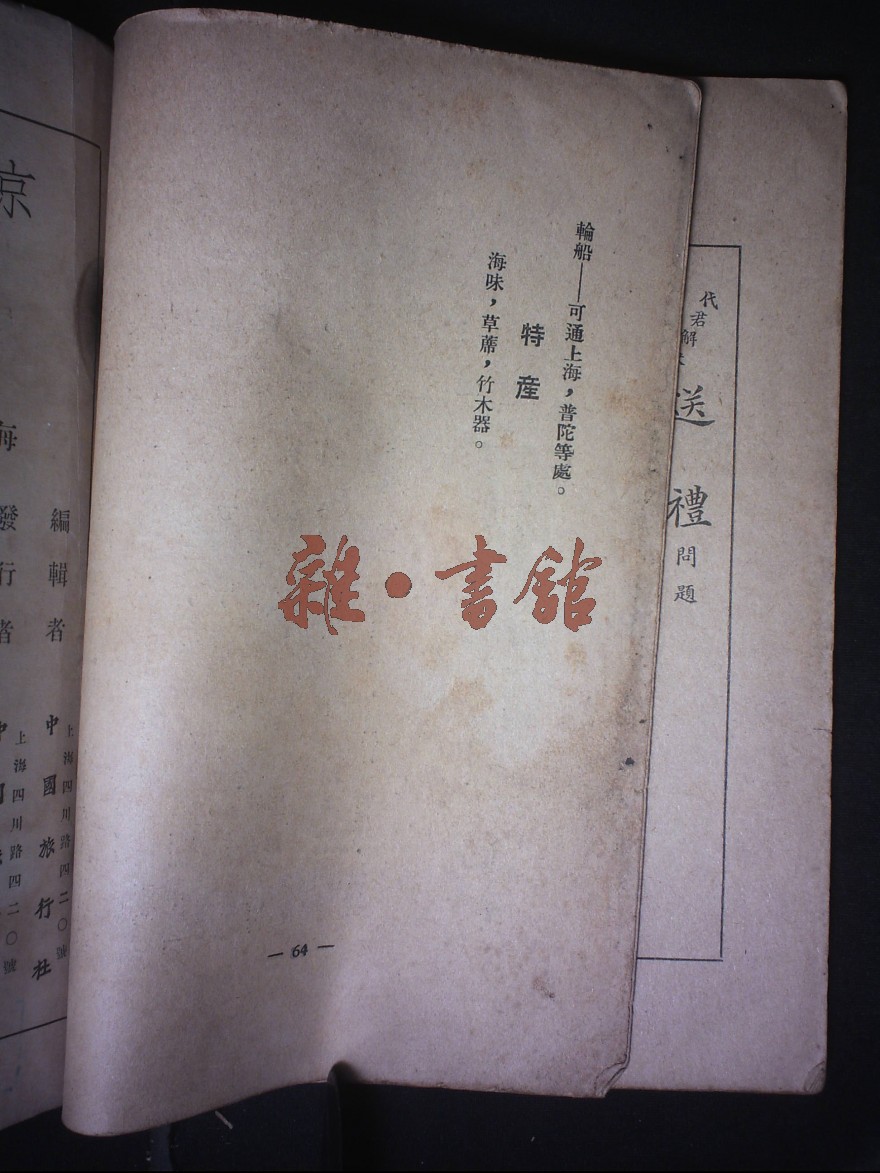 代君解
送禮
問題
輪船——可通上海，普陀等處。
特產
海味，草蓆，竹木器。
雜·書館
— 64 —
上海四川路四二〇號
編輯者 中國旅行社
上海四川路四二〇號
海發行者 中
京